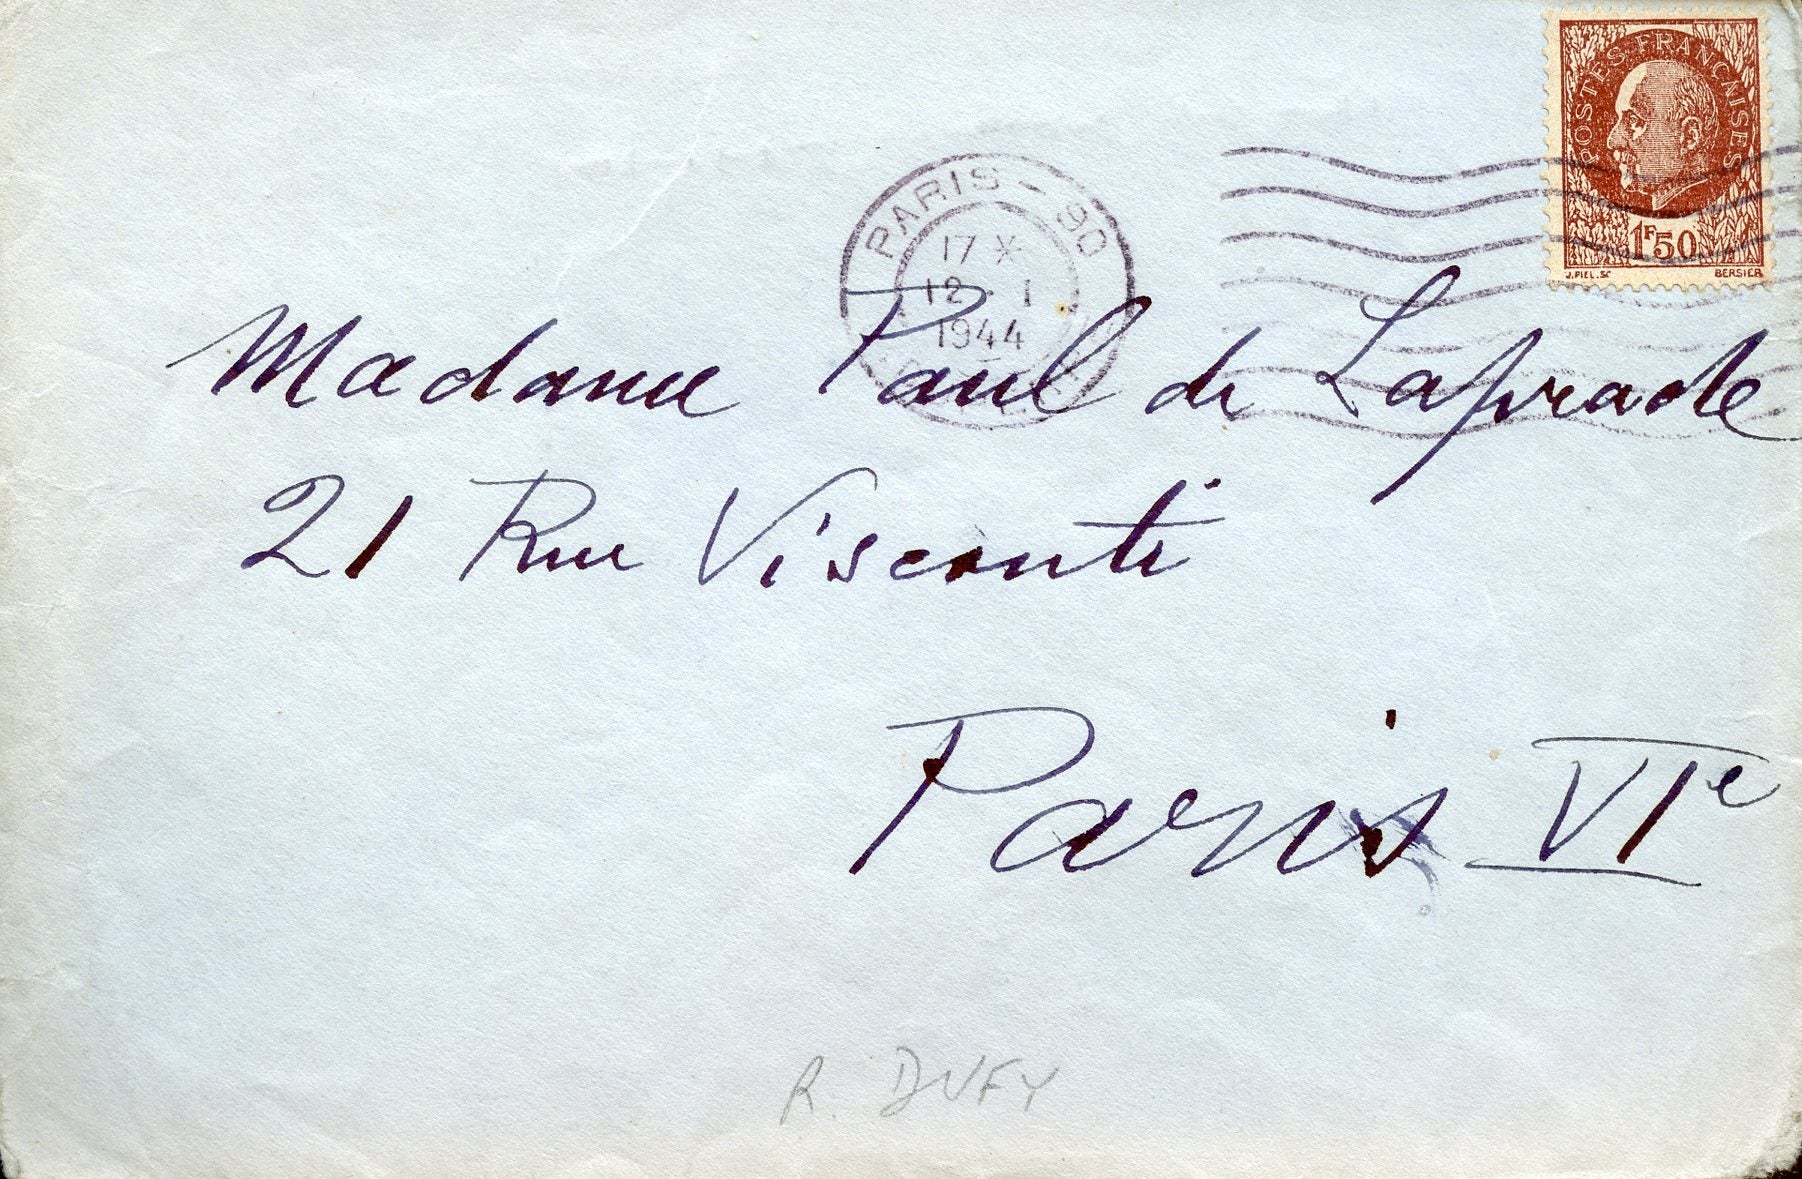 POSTES FRANÇAISES
1F50
J. PIEL. SC BERSIER
PARIS - 90
17 *
12 - I
1944
Madame Paul de Laprade
21 Rue Visconti
Paris VIe
R. DUFY